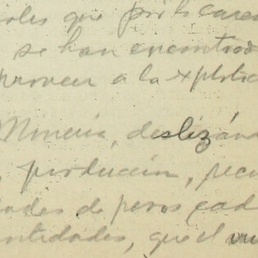 oles que por lo caren
se han encontrado
proveer a la xplota
Minería, deslizánd
, producción, recu
ades de pesos cad
antidades, que el